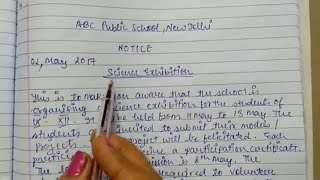 ABC Public School, New Delhi
NOTICE
02, May 2017
Science Exhibition
This is to make you aware that the school is
organising science exhibition for the students of
IX - XII. It be held from 11 May to 15 May. The
students are to submit their models /
projects project will be felicitated. Each
partici a participation certificate.
ion is 8th May. The
required to volunteer